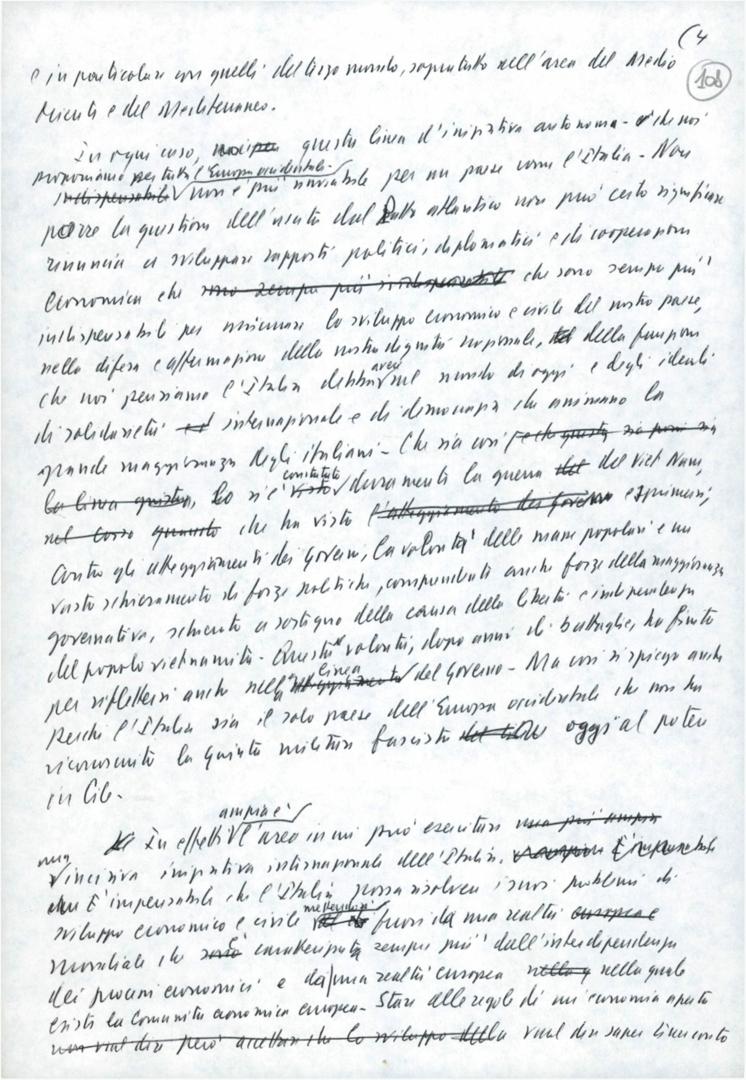 (4
108
e in particolare con quelli del terzo mondo, soprattutto nell'area del Medio
Oriente e del Mediterraneo.
In ogni caso, questa linea d'iniziativa autonoma - che noi
proponiamo per tutta l'Europa occidentale -
indispensabile non è più inviabile per un paese come l'Italia - Non
porre la questione dell'uscita dal Patto atlantico non può certo significare
rinuncia a sviluppare rapporti politici, diplomatici e di cooperazione
economica che sono sempre più indispensabili che sono sempre più
indispensabili per assicurare lo sviluppo economico e civile del nostro paese,
nella difesa e affermazione della nostra dignità nazionale, della funzione
avere
che noi pensiamo l'Italia debba nel mondo di oggi e degli ideali
di solidarietà internazionale e di democrazia che animano la
grande maggioranza degli italiani - Che sia così e che questa sia
constatato
la linea giusta, lo si è visto duramente la guerra del del Viet Nam,
nel corso quanto che ha visto l'atteggiamento dei governi esprimersi,
contro gli atteggiamenti dei Governi, la volontà delle masse popolari e un
vasto schieramento di forze politiche, comprendente anche forze della maggioranza
governativa, schierato a sostegno della causa della libertà e indipendenza
del popolo vietnamita - Questa volontà, dopo anni di battaglie, ha finito
linea
per riflettersi anche nella atteggiamento del Governo - Ma così si spiega anche
perché l'Italia sia il solo paese dell'Europa occidentale che non ha
riconosciuto la giunta militare fascista oggi al potere
in Cile -
ampia è
In effetti l'area in cui può esercitarsi una più ampia
una
incisiva iniziativa internazionale dell'Italia. È impensabile
È impensabile che l'Italia possa risolvere i suoi problemi di
mettendosi
sviluppo economico e civile fuori da una realtà europea
mondiale che è caratterizzata sempre più dall'interdipendenza
dei processi economici e da una realtà europea nella nella quale
esiste la Comunità economica europea - Stare alle regole di un'economia aperta
non vuol dire però accettare che lo sviluppo della vuol dire saper tener conto